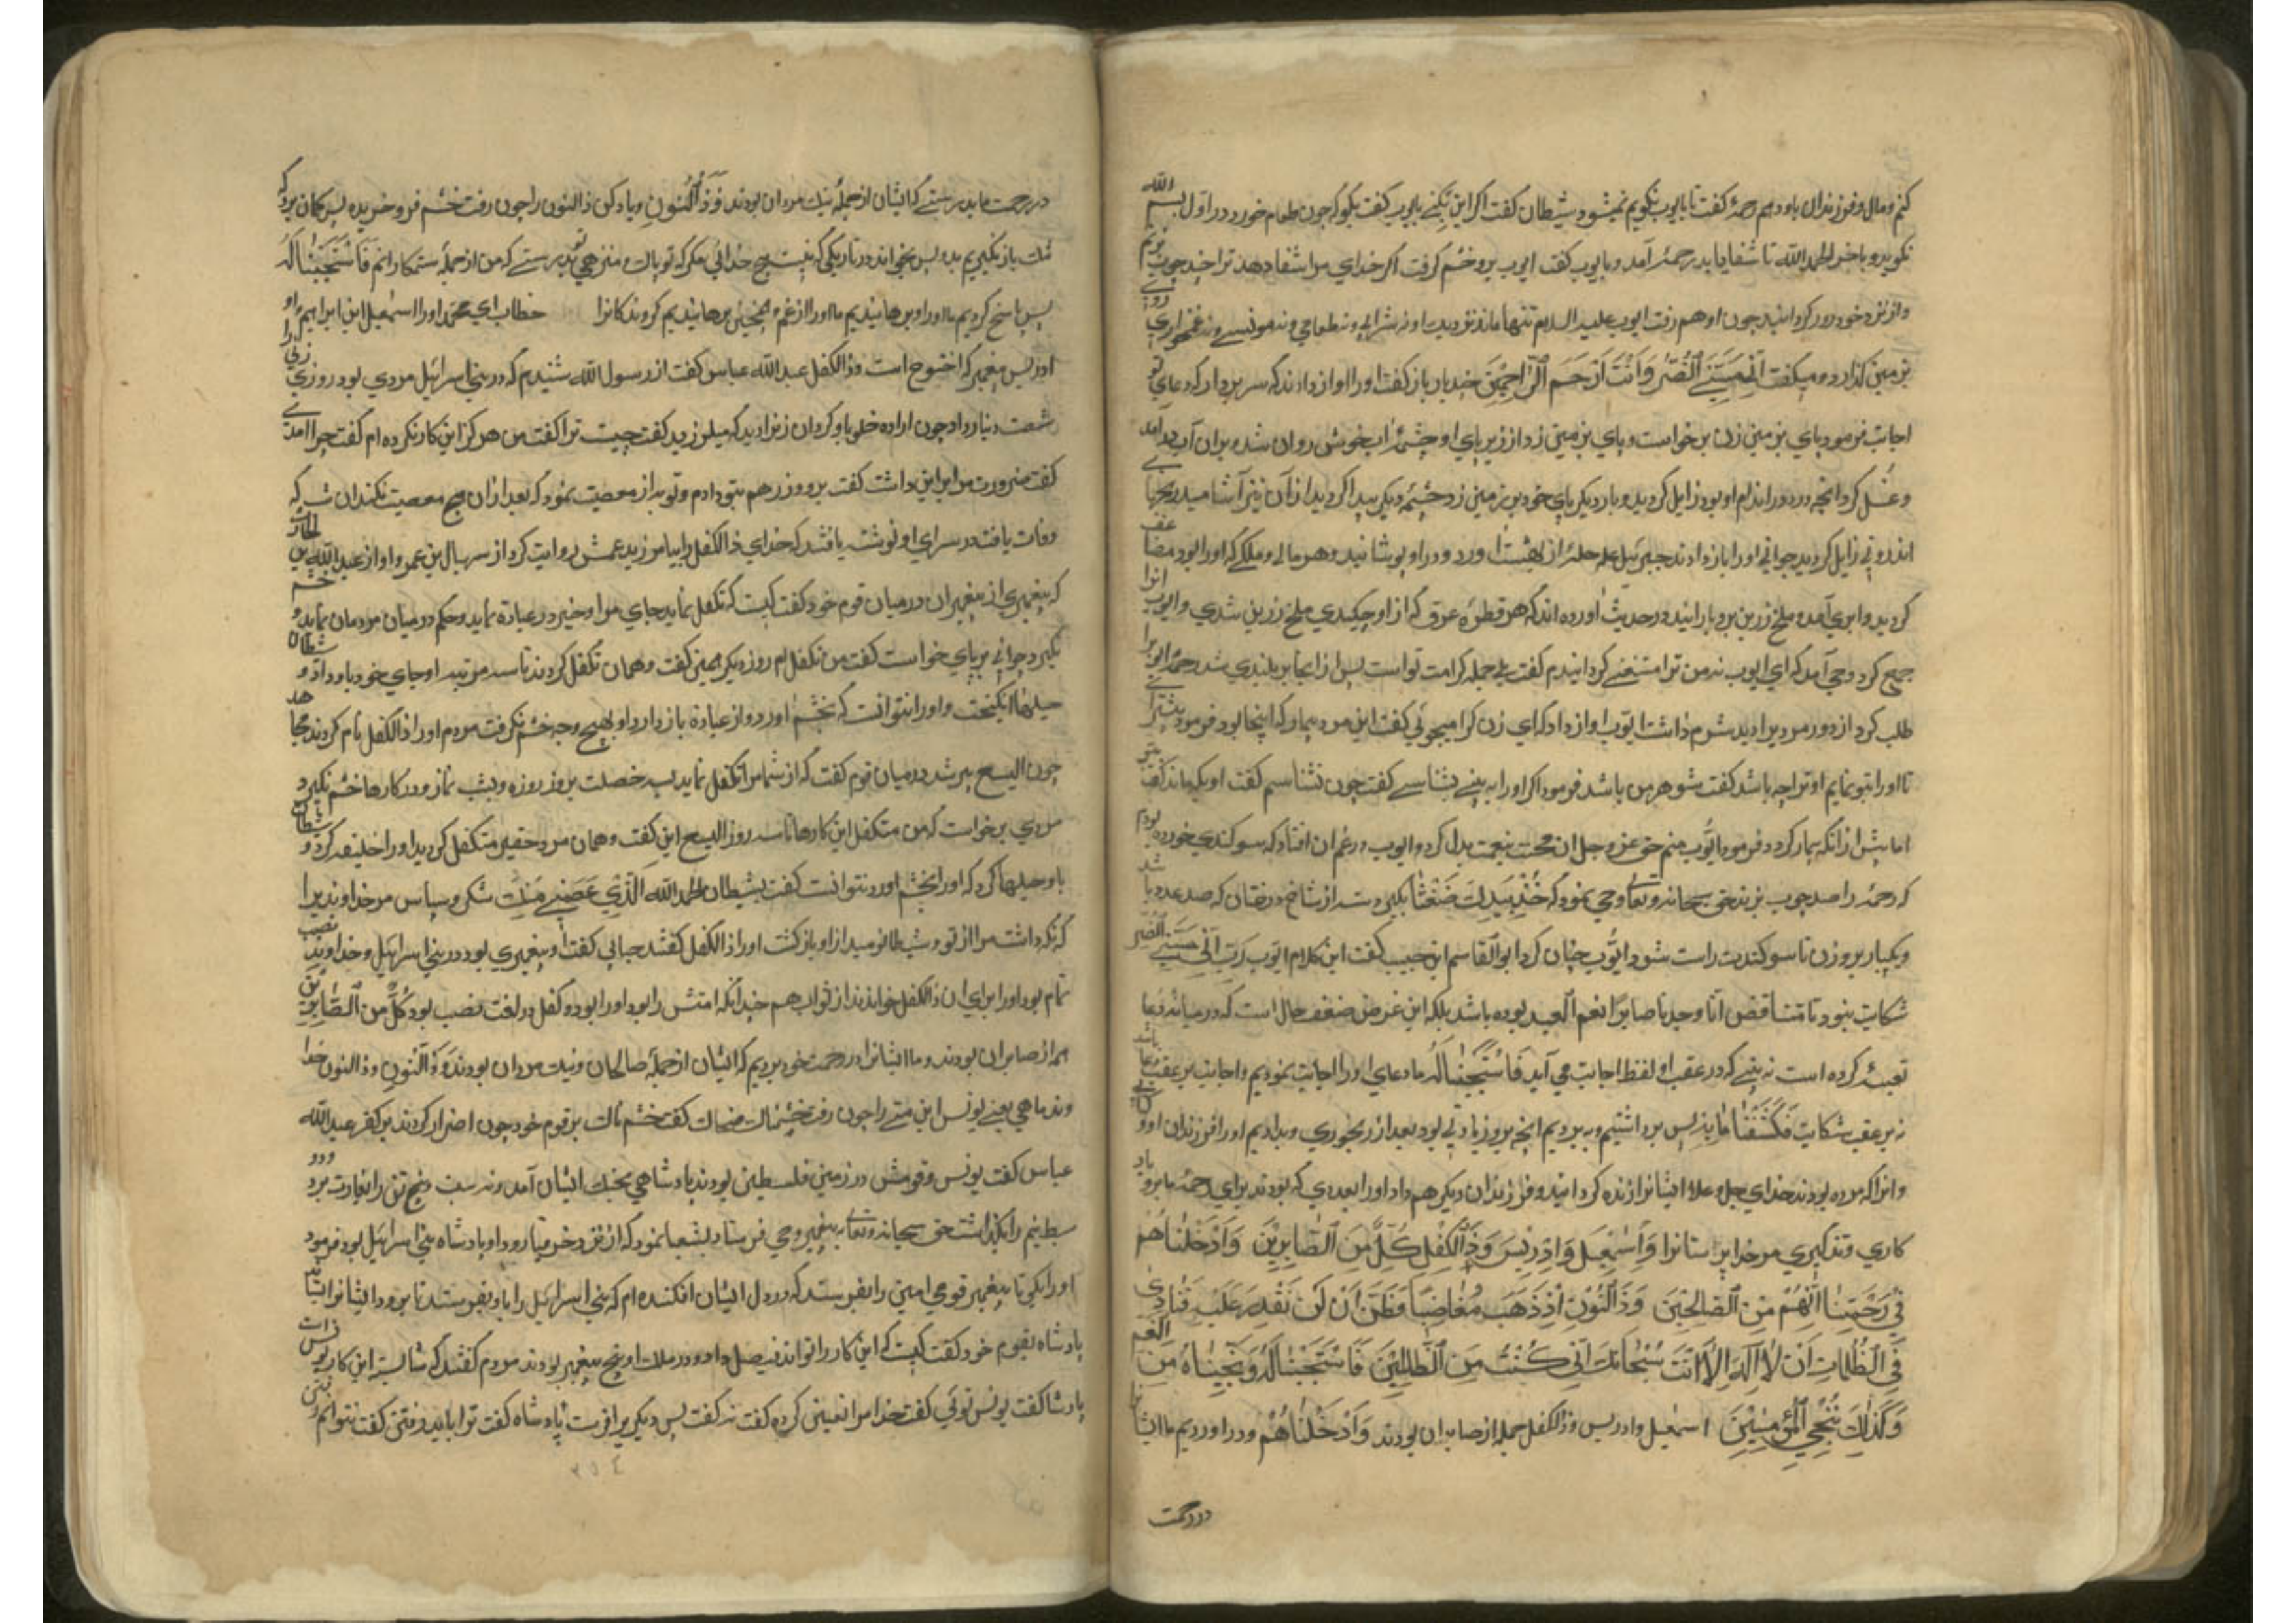 کنم و مال و فرزندان باو دهم رحمه کفت تا بایوب نکویم نمیشود شیطان کفت اکر این نکنی بایوب کفت بکو که چون طعام خورد در اول بسم الله
نکوید و باخر الحمدلله تا شفا یابد رحمه آمد و بایوب کفت ایوب برو خشم کرفت اکر خدای مرا شفا دهد ترا صد چوب بزنم
و از نزد خود دور کردانید چون او هم رفت ایوب علیه السلام تنها ماند نزدیک او نه شرابی و نه طعامی و نه مونسی و نه غمخواری روی
بر زمین کذارد و میکفت أنی مسنی الضر وأنت أرحم الراحمین چند بار باز کفت او را اواز دادند که سر بردار که دعای تو
اجابت فرمود پای بر زمین زن برخواست و پای بر زمین زد از زیر پای او چشمۀ اب خوش روان شد بران آب در آمد
و غسل کرد انچه درد در اندام او بود زایل کردید و بار دیکر پای خود بر زمین زد چشمۀ دیکر پیدا کردید از آن نیز آشامید رنجهای
اندرونی زایل کردید جوانی او را باز دادند جبرئیل علم حلۀ از بهشت اورد و در او پوشانید و هر مالی و ملکی که او را بود مضاعف
کردید و ابری آمد و ملخ زرین برو بارانید در حدیث اورده اند که هر قطرۀ عرق که از او چکیدی ملخ زرین شدی و ایوب انرا
جمع کرد وحی آمد که ای ایوب نه من ترا مستغنی کردانیدم کفت بلی جمله کرامت تو است پس از انجا بر بلندی شد رحمه ایوب را
طلب کرد از دور مردیرا دید شرم داشت ایوب اواز داد که ای زن کرا میجوئی کفت این مرد بیمار که اینجا بود فرمود
تا او را بتو نمایم او ترا چه باشد کفت شوهر من باشد فرمود اکر او را به بینی بشناسی کفت چون نشناسم کفت او بکه ماند کفت بتو
اما پیش از انکه بیمار کردد فرمود ایوب منم حق عز و جل ان محنت بنعمت بدل کرد و ایوب در غم ان افتاد که سوکندی خورده بودم
که رحمه را صد چوب بزند حق سبحانه وتعالی وحی نمود که خذ بیدک ضغثا بکیر دسته از شاخ درختان که صد عدد باشد
و یکبار برو زن تا سوکندت راست شود ایوب چنان کرد ابوالقاسم ابن حبیب کفت این کلام ایوب رب أنی مسنی الضر
شکایت نبود تا متناقض انا وجدناه صابرا نعم العبد بوده باشد بلکه این عرض ضعف حال است که در میانه دعا
تعبیه کرده است نه بینی که در عقب او لفظ اجابت می آید فاستجبنا له ما دعای او را اجابت نمودیم و اجابت بر عقب دعا باشد
نه بر عقب شکایت فکشفنا ما به پس برداشتیم و ببردیم انچه برو زیادتی بود بعد از رنجوری و بدادیم او را فرزندان او و
وانرا که مرده بودند خدای جل و علا ایشانرا زنده کردانید و فرزندان دیکر هم داد او را بعددی که بودند برای رحمه ما برو یاد
کاری و تذکیری مر خدا پرستانرا وأسمعیل وادریس وذا الکفل کل من الصابرین وأدخلناهم
فی رحمتنا انهم من الصالحین وذا النون اذ ذهب مغاضبا فظن أن لن نقدر علیه فنادی
فی الظلمات أن لا اله الا أنت سبحانک انی کنت من الظالمین فاستجبنا له ونجیناه من الغم
وکذلک ننجی المؤمنین اسمعیل و ادریس و ذالکفل جمله از صابران بودند وأدخلناهم و در اوردیم ما ایشانرا
در رحمت
در رحمت ما بدرستی که ایشان از جملۀ نیک مردان بودند وذا النون و یاد کن ذالنون را چون رفت خشم فرو خریده پس کمان برد که
تنک باز نکیریم بدو پس بخواند در تاریکی که نیست هیچ خدائی مکر که تو پاک و منزهی تو بدرستی که من از جملۀ ستمکارانم فاستجبنا له
پس پاسخ کردیم ما او را و برهانیدیم ما او را از غم و همچنین برهانیدیم کروندکانرا خطاب ای محمد او را اسمعیل ابن ابراهیم را و
ادریس پیغمبر که اخنوخ است و ذالکفل عبدالله عباس کفت از رسول الله شنیدم که در بنی اسرائیل مردی بود روزی زنی را
شصت دینار داد چون اراده خلو باو کرد ان زنرا دید که میلرزید کفت چیست ترا کفت من هرکز این کار نکرده ام کفت چرا امدی
کفت ضرورت مرا بر این داشت کفت برو و زر هم بتو دادم و توبه از معصیت نمود که بعد از ان هیچ معصیت نکند ان شب که
وفات یافت در سرای او نوشته یافتند که خدای ذالکفل را بیامرزید عمش روایت کرد از سهال بن عمر و او از عبدالله بن الحارث
که پیغمبری از پیغمبران در میان قوم خود کفت کیست که تکفل نماید جای مرا و خیر در عیادة نماید و حکم در میان مردمان نماید و خشم
نکیرد جوانی برپای خواست کفت من تکفلم روز دیکر همین کفت و همان تکفل کردند تا سه مرتبه او جای خود باو داد و شیطان
حیلها انکیخت و او را نتوانست که بخشم اورد و از عبادة باز دارد او بهیچ وجه خشم نکرفت مردم او را ذالکفل نام کردند مجاهد
چون الیسع پیر شد در میان قوم کفت که از شما مرا تکفل نماید بسه خصلت بروز روزه و بشب نماز و در کارها خشم نکیرد
مردی برخواست که من متکفل این کارها تا سه روز الیسع این کفت و همان مرد حقیر متکفل کردید او را خلیفه کرد و شیطان
باو حیلها کرد که او را بخشم اورد نتوانست کفت بشیطان الحمد الله الذی عصمنی منک شکر و سپاس مر خداوندیرا
که نکه داشت مرا از تو و شیطان نومید از او باز کشت او را ذالکفل کفتند جبایی کفت او پیغمبری بود در بنی اسرائیل و خداوند نصیب
تمام بود او را برای ان ذالکفل خواندند از ثواب هم چندانکه امتش را بود او را بود و کفل در لغت نصیب بود کل من الصابرین
همه از صابران بودند و ما ایشانرا در رحمت خود بردیم که ایشان از جملۀ صالحان و نیک مردان بودند وذا النون و ذالنون خدا
وند ماهی یعنی یونس ابن متی را چون رفت خشمناک ضحاک کفت خشمناک بر قوم خود چون اصرار کردند بر کفر عبدالله
عباس کفت یونس و قومش در زمین فلسطین بودند پادشاهی بجنک ایشان آمد و نه سبط و نیم را بغارت برد و دو
سبط نیم را بکذاشت حق سبحانه وتعالی به پیغمبر وحی فرستاد بشعیا نمود که از نزد حزقیا رو و او پادشاه بنی اسرائیل بود فرمود
او را بکو تا پیغمبر قوی امین را بفرستد که در دل ایشان افکنده ام که بنی اسرائیل را باو بفرستند تا برود ایشانرا
پادشاه بقوم خود کفت کیست که این کار را تواند فیصل داد و در ملک او پنج پیغمبر بودند مردم کفتند که شایسته این کار یونس است
پادشا کفت یونس توئی کفت خدا مرا تعیین کرده کفت نه کفت پس دیکریرا فرست پادشاه کفت ترا باید رفتن کفت نتوانم
۳۵۴